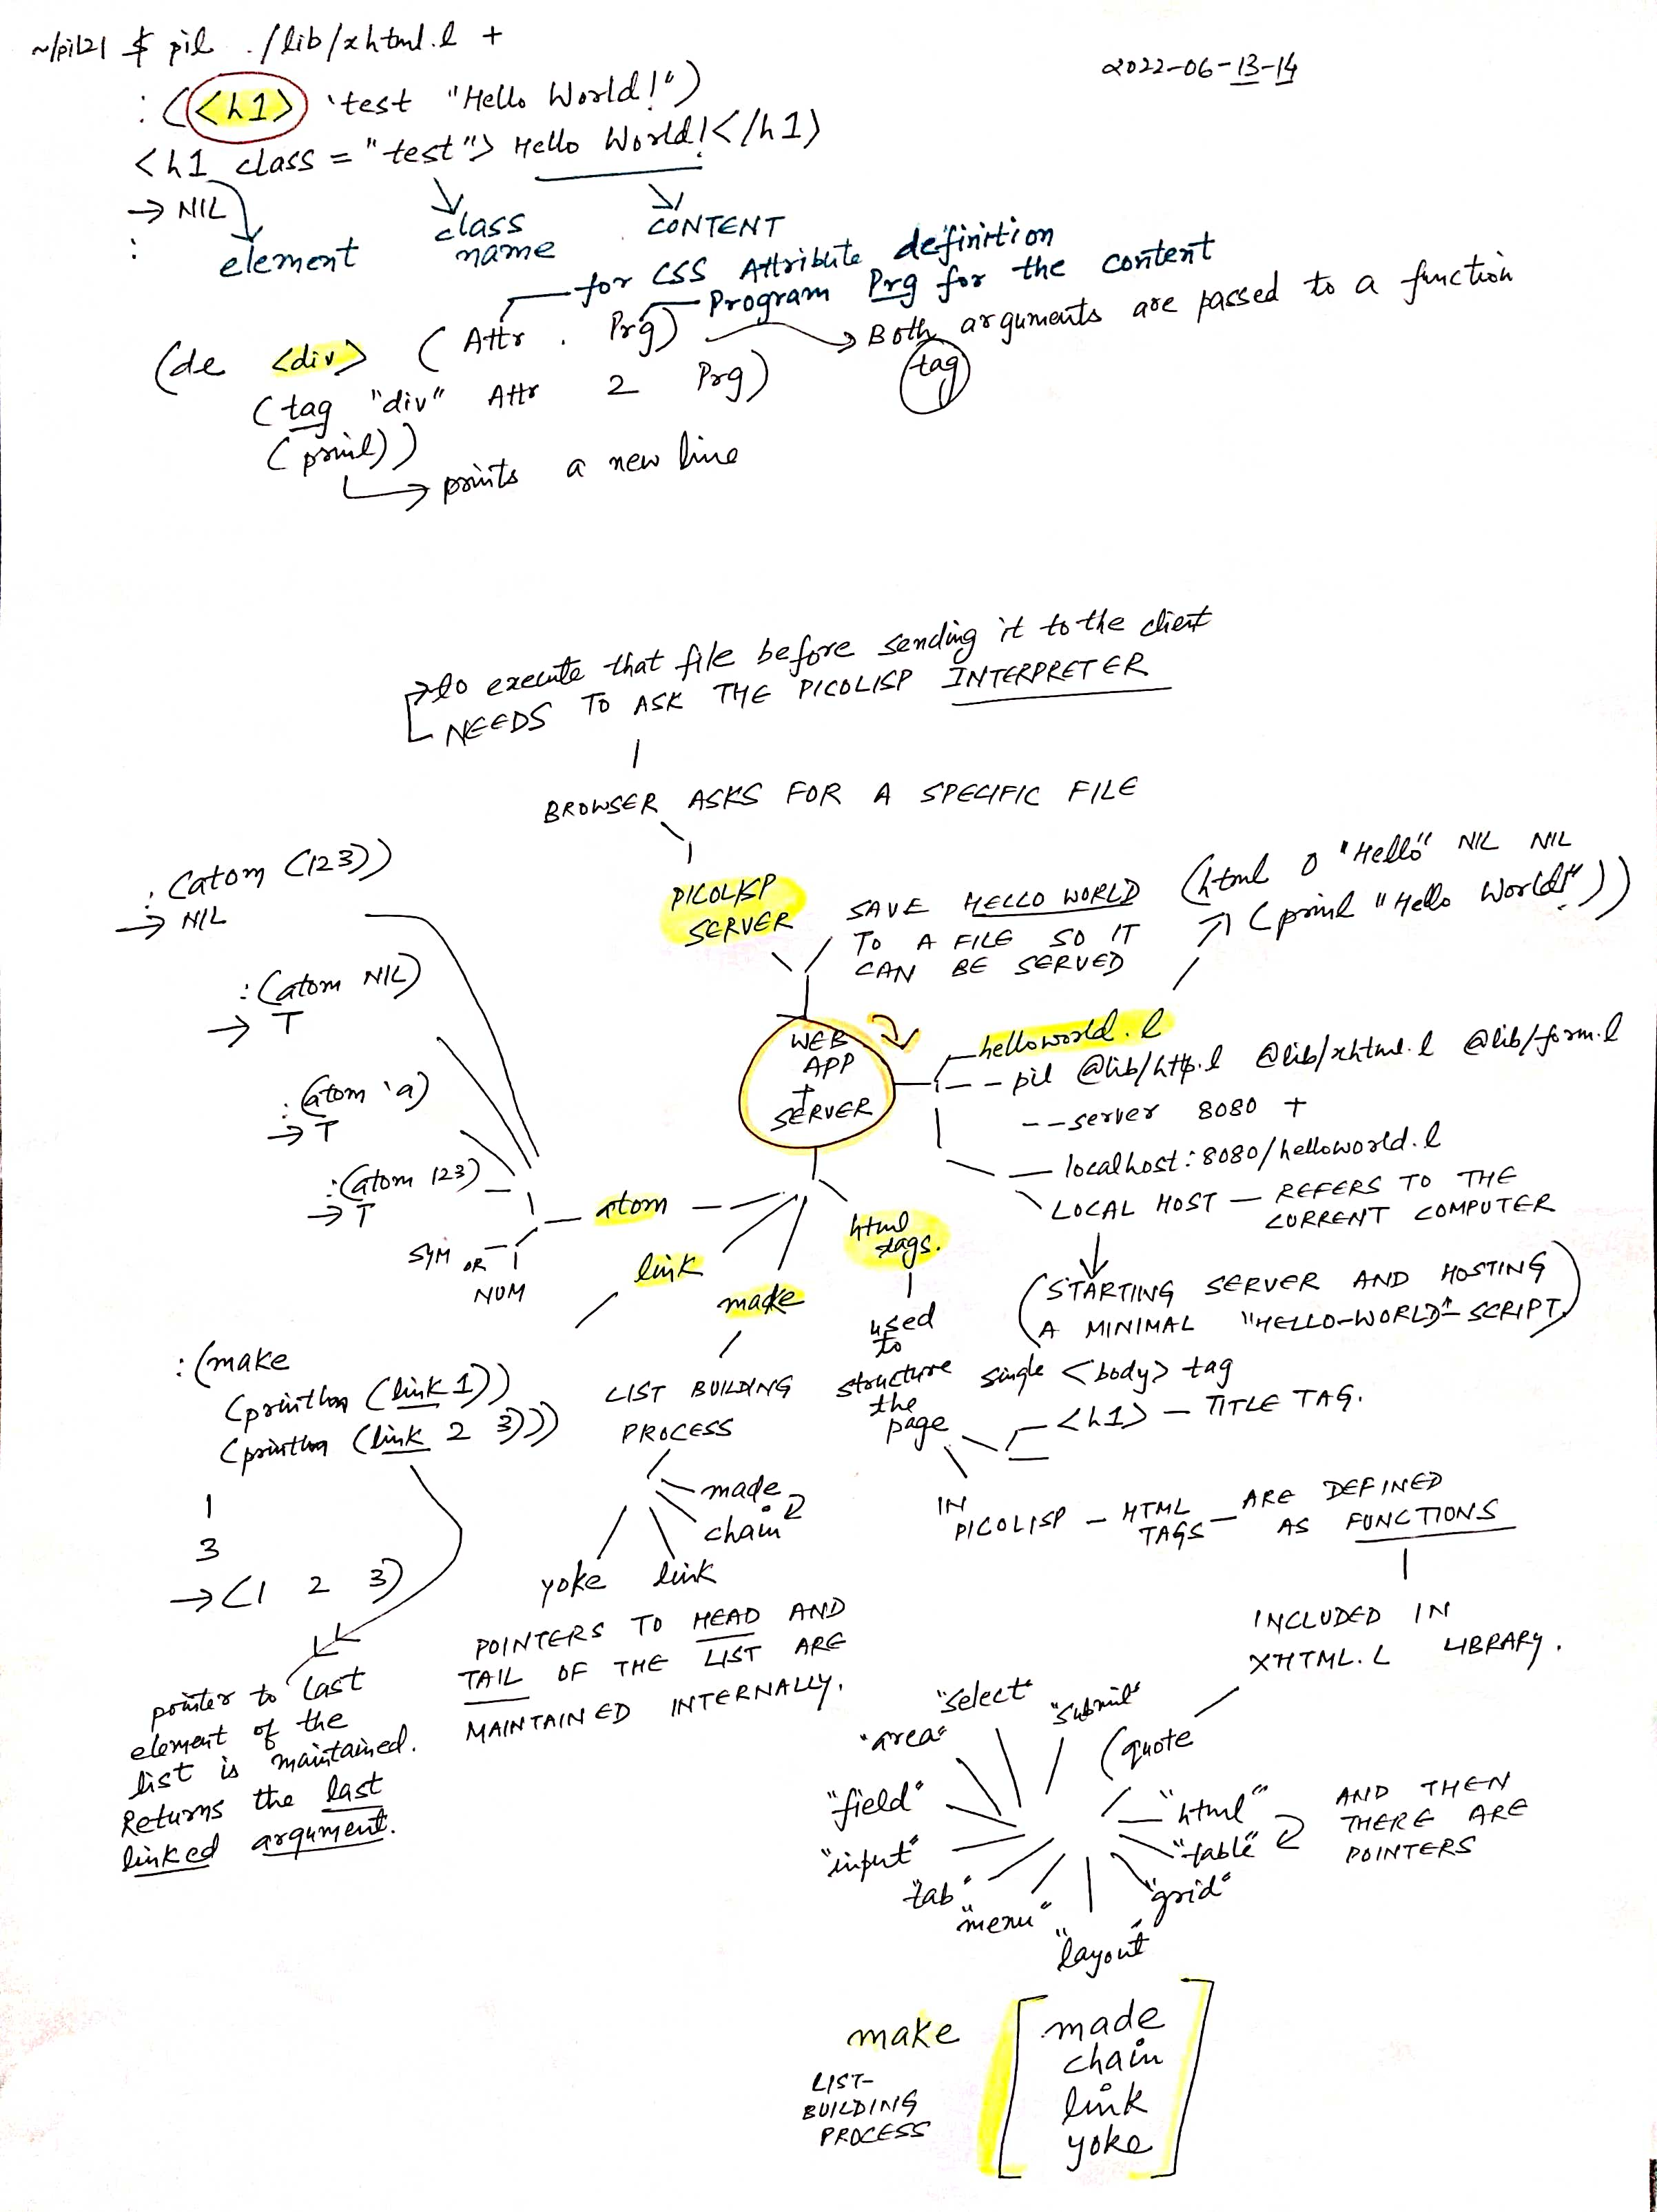 ~/pil21 $ pil ./lib/xhtml.l +
2022-06-13-14
: (<h1> 'test "Hello World!")
<h1 class = "test"> Hello World!</h1>
→ NIL
:
element
class
name
CONTENT
for CSS Attribute definition
Program Prg for the content
(de <div> (Attr . Prg)
Both arguments are passed to a function
tag
(tag "div" Attr 2 Prg)
(prinl))
prints a new line
to execute that file before sending it to the client
NEEDS TO ASK THE PICOLISP INTERPRETER
BROWSER ASKS FOR A SPECIFIC FILE
PICOLISP
SERVER
SAVE HELLO WORLD
TO A FILE SO IT
CAN BE SERVED
(html 0 "Hello" NIL NIL
(prinl "Hello World!"))
: (atom (123))
→ NIL
: (atom NIL)
→ T
: (atom 'a)
→ T
: (atom 123)
→ T
SYM OR
NUM
WEB
APP
+
SERVER
helloworld.l
pil @lib/http.l @lib/xhtml.l @lib/form.l
--server 8080 +
localhost:8080/helloworld.l
LOCAL HOST — REFERS TO THE
CURRENT COMPUTER
(STARTING SERVER AND HOSTING
A MINIMAL "HELLO-WORLD"-SCRIPT)
atom
link
make
html
tags.
used
to
structure
the
page
single <body> tag
<h1> — TITLE TAG.
IN
PICOLISP — HTML
TAGS — ARE DEFINED
AS FUNCTIONS
INCLUDED IN
XHTML.L LIBRARY.
: (make
(println (link 1))
(println (link 2 3)))
1
3
→ (1 2 3)
pointer to last
element of the
list is maintained.
Returns the last
linked argument.
LIST BUILDING
PROCESS
made
chain
yoke link
POINTERS TO HEAD AND
TAIL OF THE LIST ARE
MAINTAINED INTERNALLY.
"select"
"submit"
"area"
(quote
"field"
"html"
"input"
"table"
"tab"
"grid"
"menu"
"layout"
AND THEN
THERE ARE
POINTERS
make
LIST-
BUILDING
PROCESS
made
chain
link
yoke